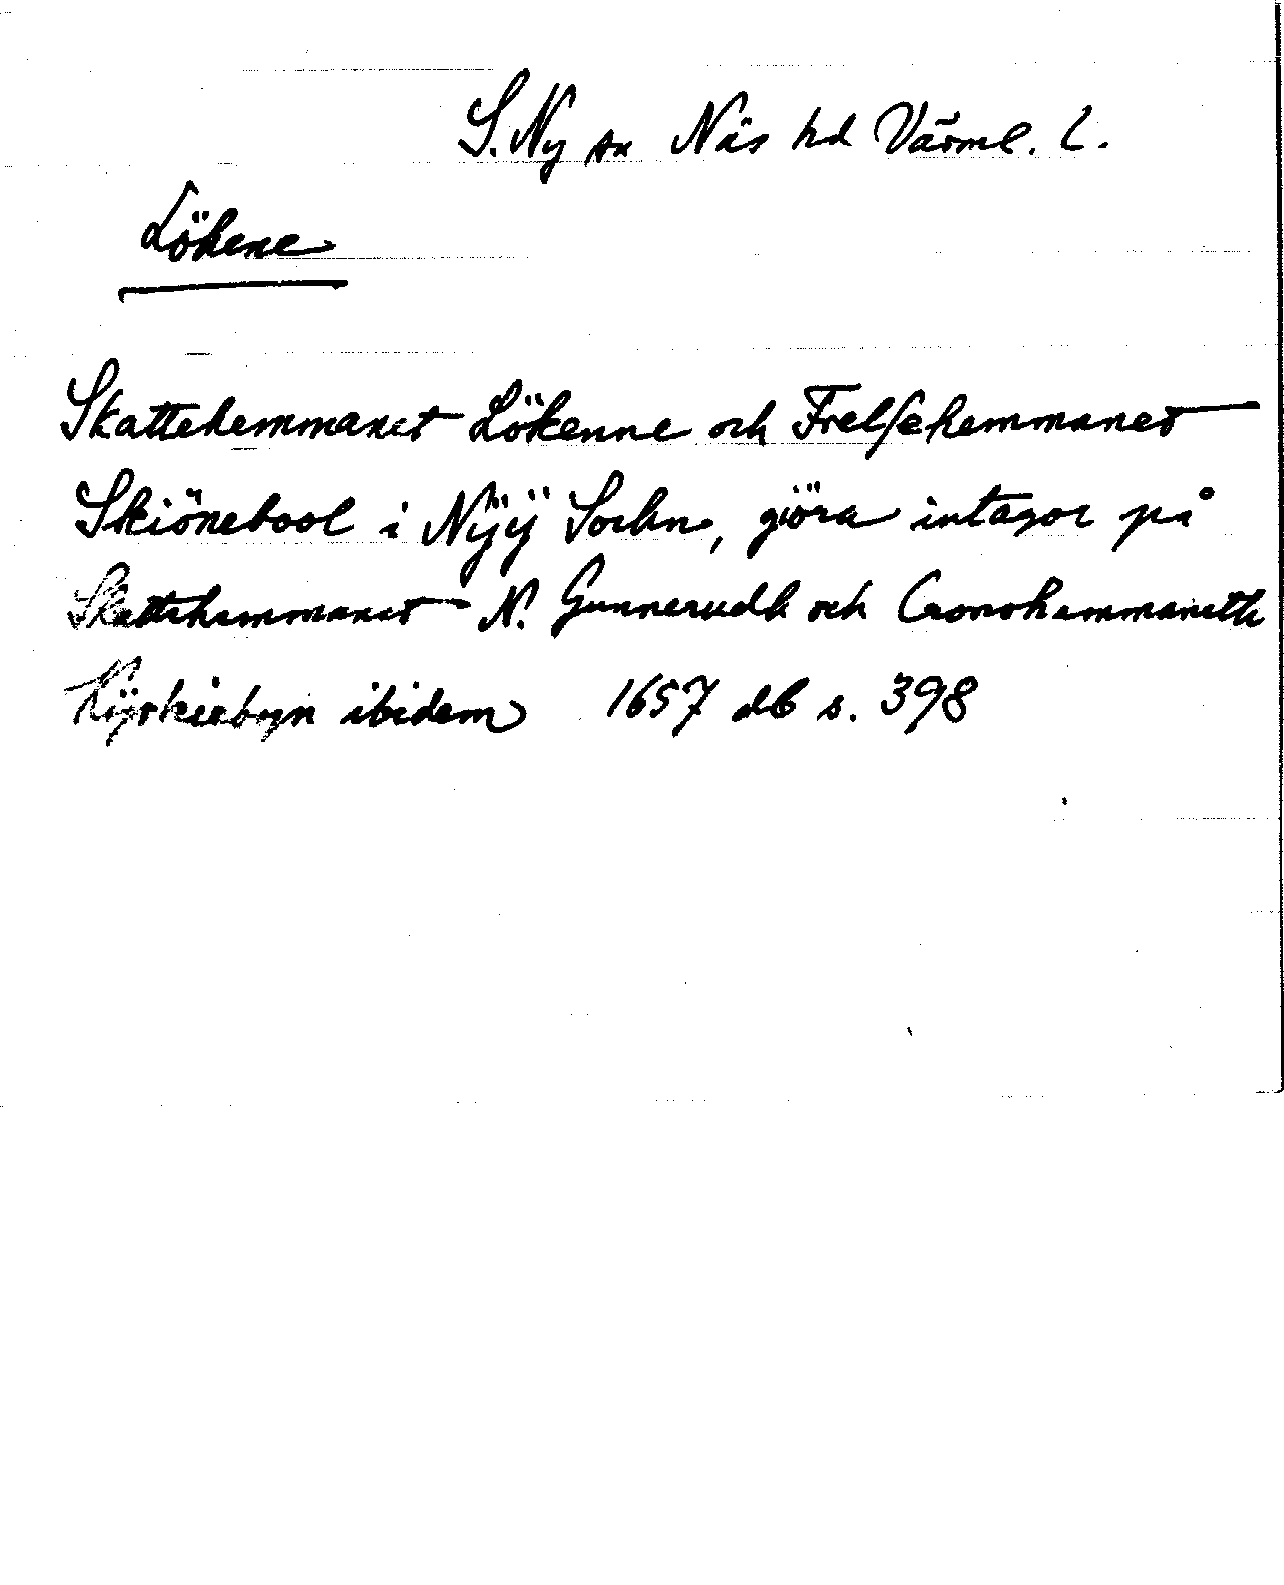 S. Ny sn Näs hd Värml. l.
Lökene
Skattehemmanet Lökenne och Frelsehemmanet
Skiönebool i Nÿÿ Sockn, giöra intagor på
Skattehemmanet N. Gunnerudh och Cronohemmaneth
Kÿrkiebyn ibidem 1657 db s. 398